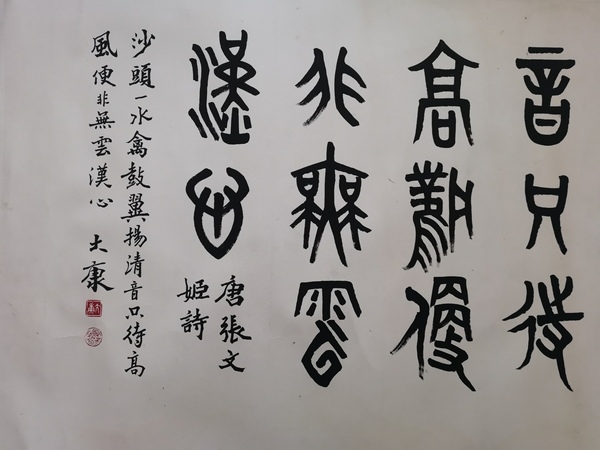 音只待
高風便
非無雲
漢心
唐張文
姬詩
沙頭一水禽鼓翼揚清音只待高
風便非無雲漢心 大康